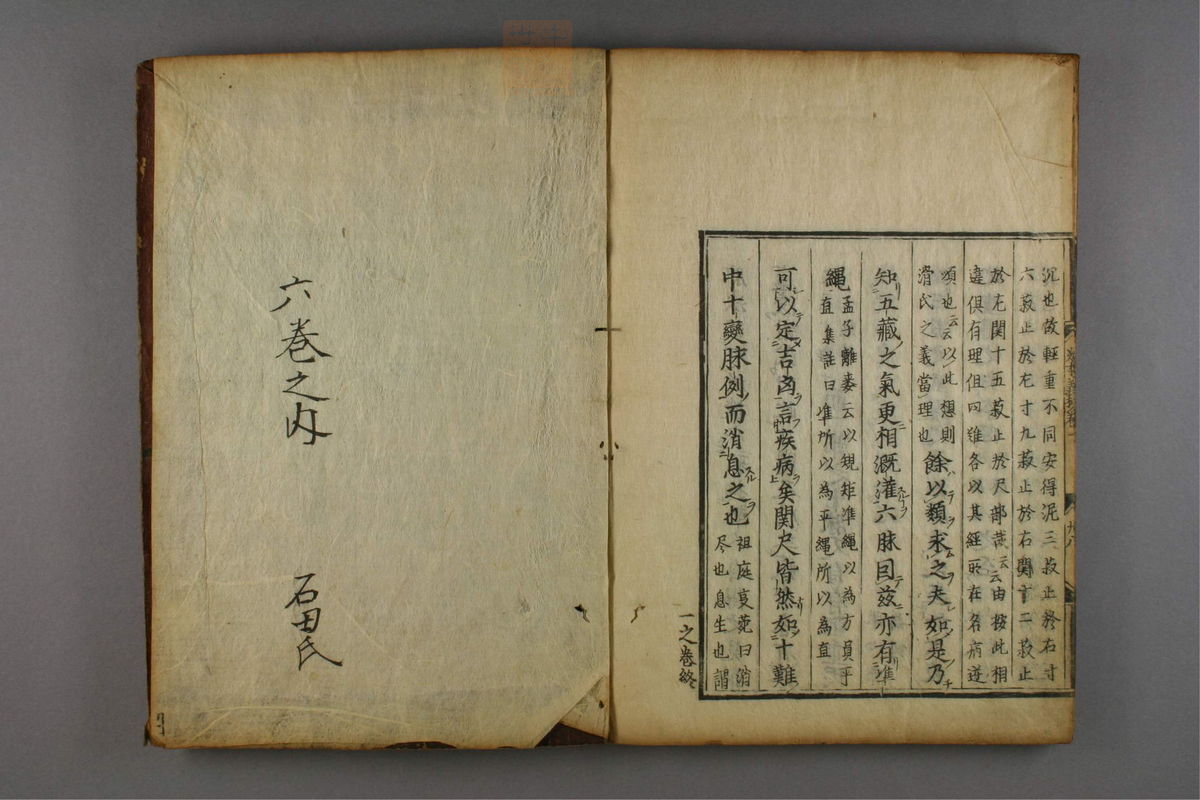 沉也故輕重不同安得泥三菽止於右寸
六菽止於左寸九菽止於右關十二菽止
於左関十五菽止於尺部哉云云由按此相
違俱有理但問難各以其經所在名病遂
頌也云云以此想則
滑氏之義當理也
餘以類求之夫如是乃
知五藏之氣更相溉灌六脉因茲亦有準
繩
孟子離婁云以規矩準繩以為方員平
直集註曰準所以為平繩所以為直
可以定吉凶言疾病矣関尺皆然如十難
中十變脉例而消息之也
祖庭事苑曰消
尽也息生也謂
一之巻終
六巻之内
石田氏